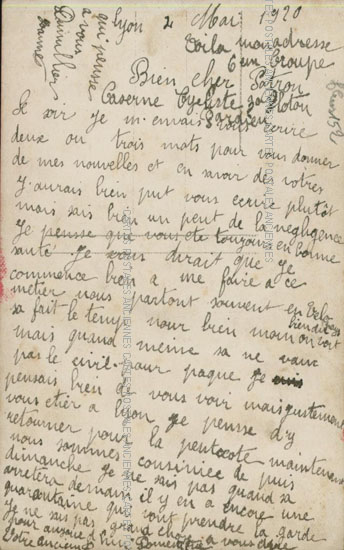 Lyon 2 Mai 1920
Voila mon adresse
6em Groupe
Cycliste 30 Ploton
Caserne
Bien cher Patron
Ce soir je m'enrais vous ecrire
deux ou trois mots pour vous donner
de mes nouvelles et en savoir de votres
J'aurais bien put vous ecrire plutôt
mais sais bien un peut de la negligence
Je pensse que vous ete toujours en bonne
santé Je vous dirait que Je
commence bien a me faire a ce
metier nous partont souvent en velo
sa fait le temps
mais quand meime sa ne vaux
pas le civil Pour paque Je
pensais bien de vous voir mais justement
vous etier a Lyon Je pensse d'y
retourner pour la pentocote maintenant
nous sommes consiniée de puis
dimanche Je ne sais pas quand sa
arretera demain il y en a encore une
quarantaine qui vont prendre la garde
Je ne sais pas grand chose a vous dire
pour aujourd'hui
Votre ancien
qui pensse
a vous